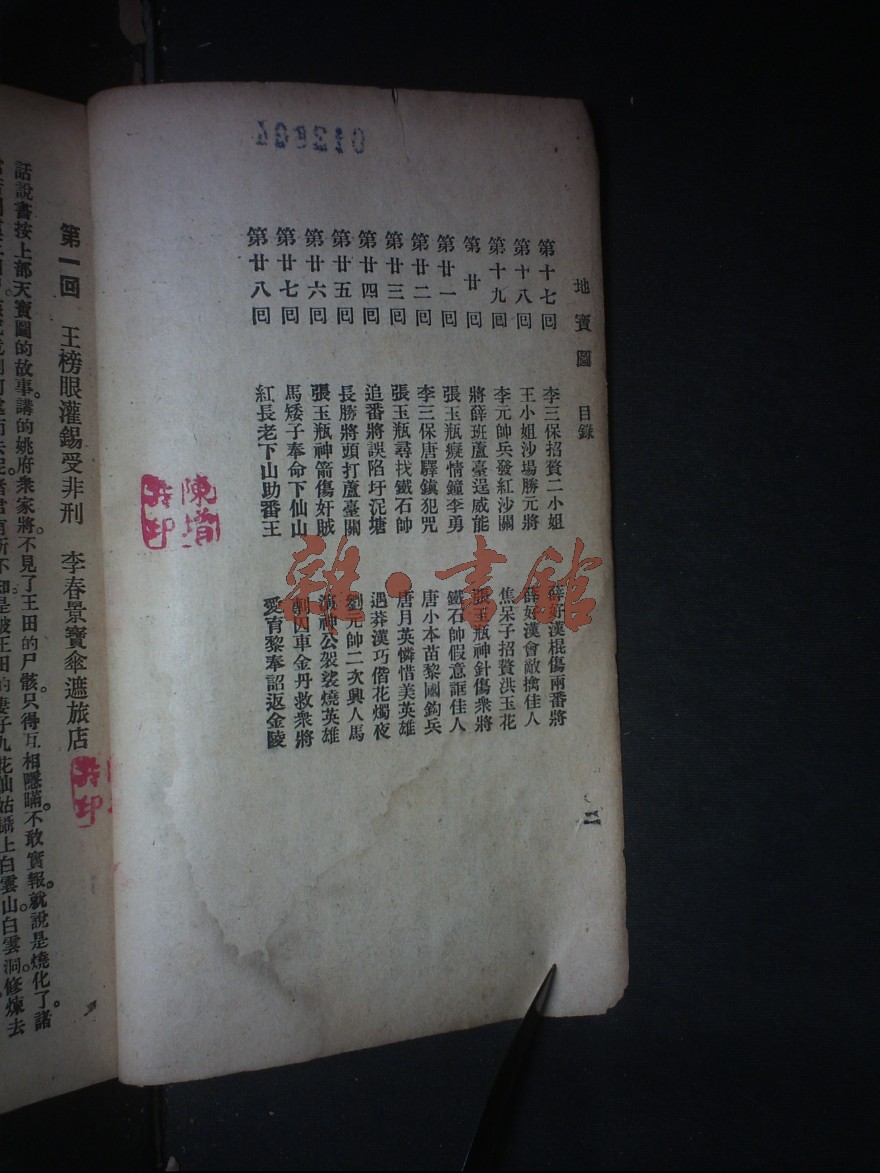 012604
地寶圖 目錄
第十七囘 李三保招贅二小姐 薛好漢棍傷兩番將
第十八囘 王小姐沙場勝元將 薛好漢會敵擒佳人
第十九囘 李元帥兵發紅沙關 焦呆子招贅洪玉花
第廿囘 將薛班蘆臺逞威能 張玉瓶神針傷衆將
第廿一囘 張玉瓶癡情鐘李勇 鐵石帥假意誆佳人
第廿二囘 李三保唐驛鎮犯咒 唐小本苗黎國鈎兵
第廿三囘 張玉瓶尋找鐵石帥 唐月英憐惜美英雄
第廿四囘 追番將誤陷圩泥塘 遇莽漢巧偕花燭夜
第廿五囘 長勝將頭打蘆臺關 劉元帥二次興人馬
第廿六囘 張玉瓶神箭傷奸賊 演神公袈裟燒英雄
第廿七囘 馬矮子奉命下仙山 劇囚車金丹救衆將
第廿八囘 紅長老下山助番王 愛育黎奉詔返金陵
二
雜·書館
陳增
印
第一囘 王榜眼灌錫受非刑 李春景寶傘遮旅店
話說書按上部天寶圖的故事。講的姚府衆家將。不見了王田的尸骸。只得互相隱瞞。不敢實報。就說是燒化了。諸
是被王田的妻子九花仙姑攝上白雲山白雲洞。修煉去